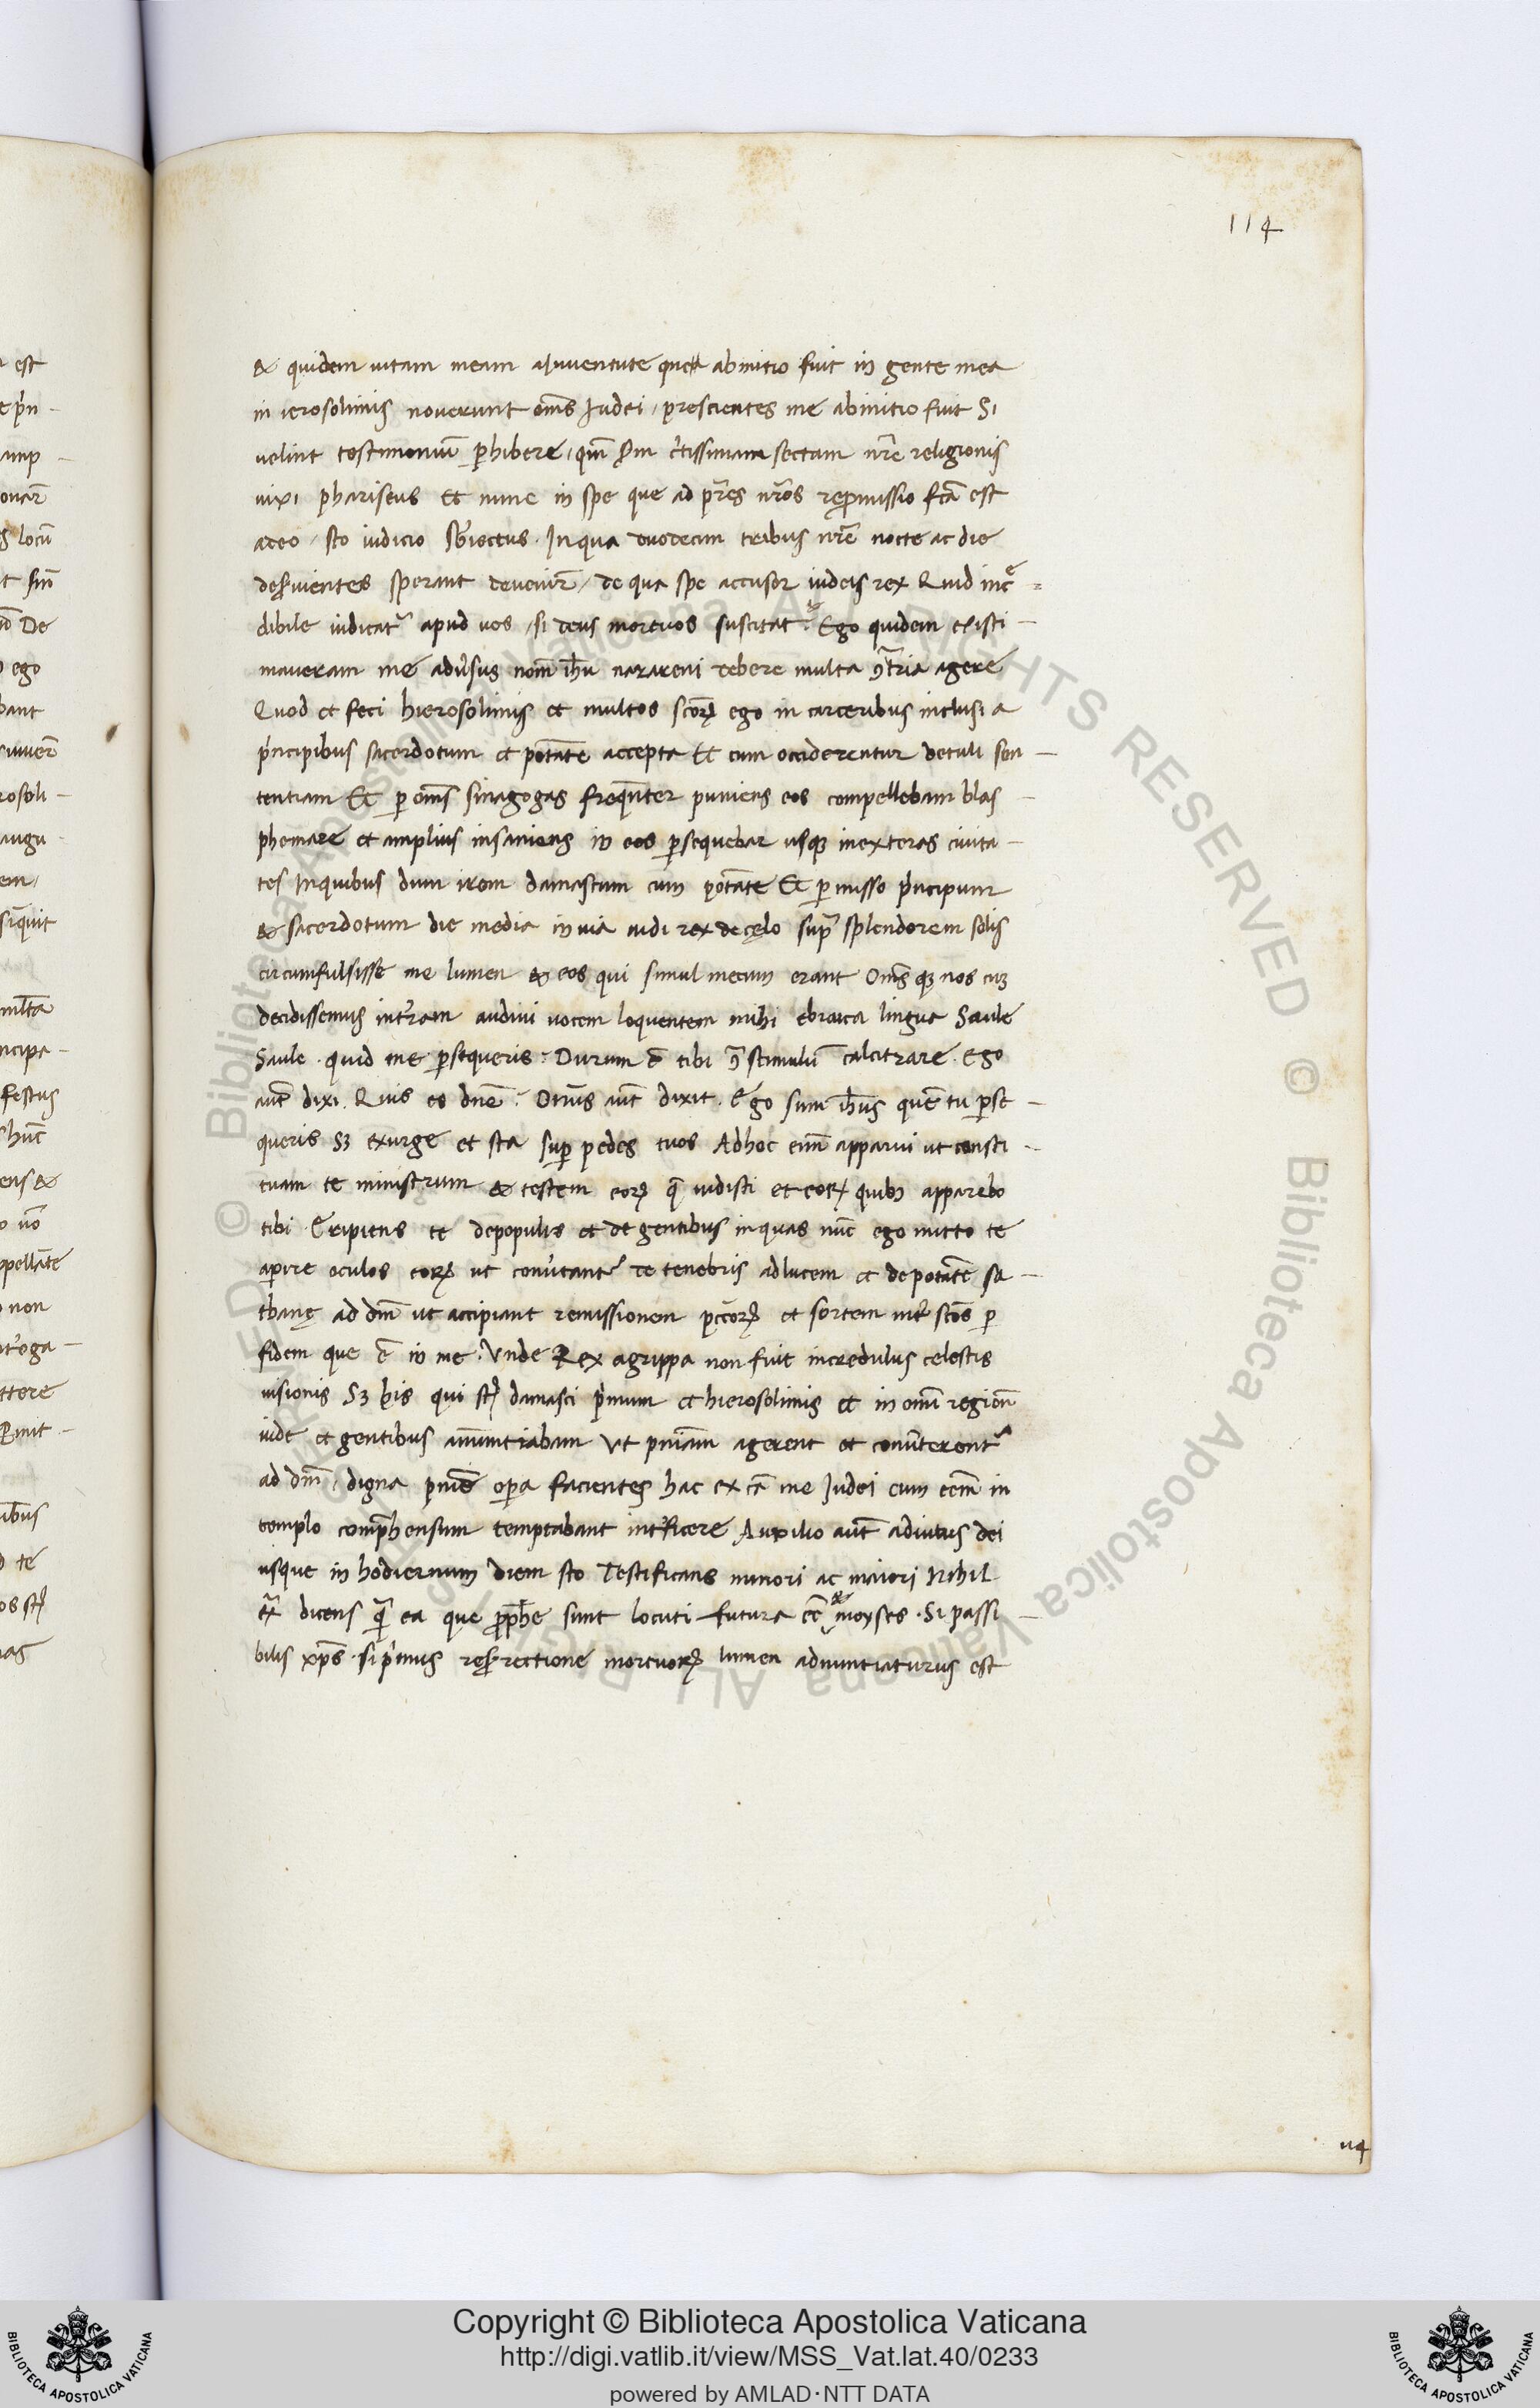 114
& quidem uitam meam aJuventute que ab initio fuit in gente mea
in ierosolimis noverunt om̅s Iudei, prescientes me abinitio fuit Si
uelint testimoniu̅ ꝑhibere, qm̅ certissimam sectam nr̅e religionis
uixi phariseus Et nunc in spe que ad pr̅es nr̅os repromissio fc̅a est
a deo sto iudicio subiectus. In qua duodecim tribus nr̅e nocte ac die
deseruientes sperant devenire, de qua spe accusor iudeis rex Quid inc̅e
dibile iudicat᷑ apud uos, si deus mortuos suscitat. Ego quidem existi
maueram me adu̓sus nom̅ ih̅u nazareni debere multa ꝯtr̅ia agere
Quod et feci hierosolimis et multos sc̅oꝝ ego in carceribus inclusi a
pꝛincipibus sacerdotum et potate̅ accepta Et cum occiderentur detuli sen
tentiam Et ꝑ om̅s sinagogas frequ̅nter puniens eos compellebam blas
phemare et amplius insaniens in eos ꝑsequebar usqꝫ inexteras ciuita
tes Inquibus dum irem damascum cum potate̅ Et ꝑmisso pꝛincipum
& sacerdotum die media in uia uidi rex de cęlo supra splendorem solis
circumfulsisse me lumen & eos qui simul mecum erant Om̅s qꝫ nos cuꝫ
decidissemus interram audiui uocem loquentem mihi ebraica lingua Saule
Saule. quid me ꝑsequeris. Durum e̅ tibi ꝯ stimulu̅ calcitrare. Ego
aut̅ dixi. Quis es dn̅e. Dn̅us aut̅ dixit. Ego sum ih̅us que̅ tu ꝑse
queris Sꝫ exurge et sta suꝑ pedes tuos Adhoc eni̅ apparui ut consti
tuam te ministrum & testem eoꝝ q̅ uidisti et eoꝝ quibꝫ apparebo
tibi Eripiens te depopulis et de gentibus inquas nu̅c ego mitto te
aperire oculos eoꝝ ut conu̓tant᷑ de tenebris adlucem et de potate̅ sa
thanę ad dm̅ ut accipiant remissionem pcc̅oꝝ et sortem inter sc̅os ꝑ
fidem que e̅ in me. Vnde Rex agrippa non fuit incredulus celestis
uisionis Sꝫ his qui st̅ damasci pꝛimum et hierosolimis et in omni region̅
iude et gentibus annuntiabam Vt pnia̅m agerent et conu̓terent᷑
ad dm̅, digna pnie̅ opera facientes hac ex ca̅ me Iudei cum ee̅m in
templo comp̅hensum temptabant interficere Auxilio aut̅ adiutus dei
usque in hodiernum diem sto Testificans minori ac maiori Nihil
ext̅ dicens qua̅ ea que prophe̅ sunt locuti futura ee̅ & moyses. Si passi
bilis xp̅s. si primus resurrectione mortuoꝝ lumen adnuntiaturus est
114
Copyright © Biblioteca Apostolica Vaticana
http://digi.vatlib.it/view/MSS_Vat.lat.40/0233
powered by AMLAD·NTT DATA